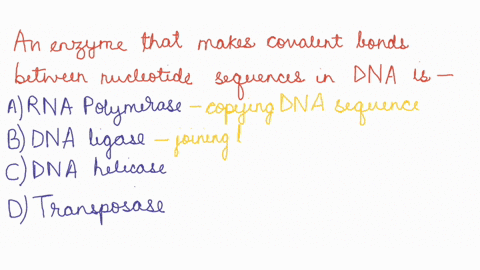 An enzyme that makes covalent bonds
between nucleotide sequences in DNA is —
A) RNA Polymerase - copying DNA sequence
B) DNA ligase - joining!
C) DNA helicase
D) Transposase